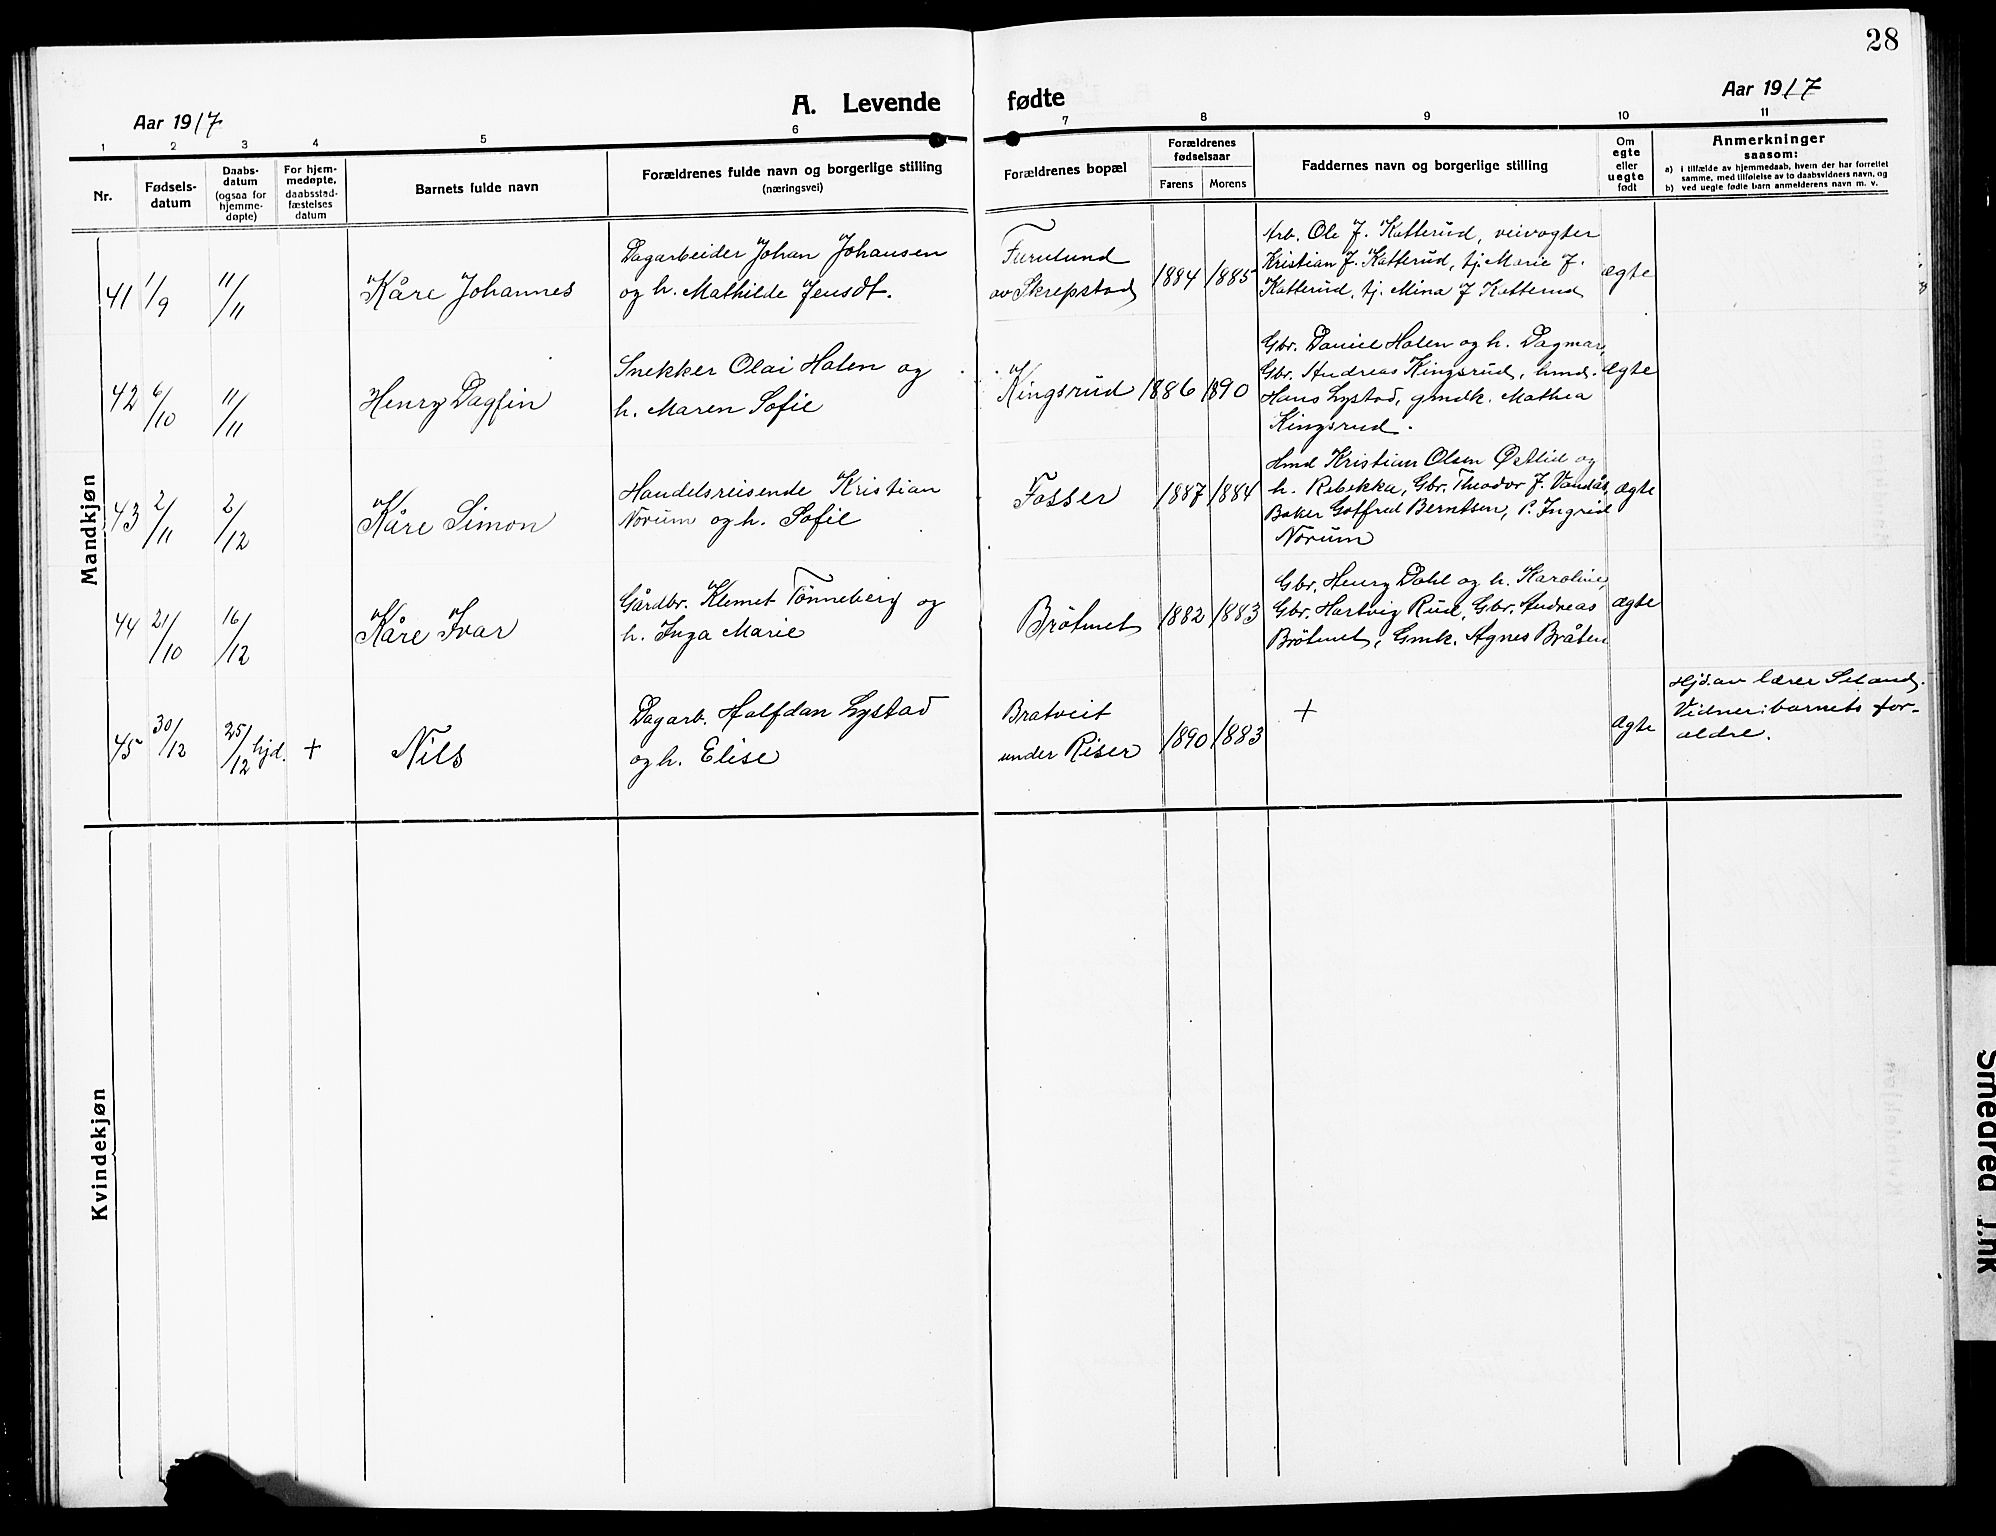 28
Aar 1917
A. Levende fødte
Aar 1917
1 2 3 4 5 6 7 8 9 10 11
Nr.
Fødsels-
datum
Daabs-
datum
(ogsaa for
hjemme-
døpte)
For hjem-
medøpte,
daabsstad-
fæstelses
datum
Barnets fulde navn
Forældrenes fulde navn og borgerlige stilling
(næringsvei)
Forældrenes bopæl
Forældrenes
fødselsaar
Farens Morens
Faddernes navn og borgerlige stilling
Om
egte
eller
uegte
født
Anmerkninger
saasom:
a) i tilfælde av hjemmedaab, hvem der har forrettet
samme, med tilføielse av to daabsvidners navn, og
b) ved uegte fødte barn anmelderens navn m. v.
Mandkjøn
41 1/9 11/11 Kåre Johannes
Dagarbeider Johan Johansen
og h. Mathilde Jensdt.
Furulund
av Skrepstad
1884 1885
Arb. Ole J. Katterud, veivogter
Kristian J. Katterud, tj. Marie J.
Katterud, tj. Mina J Katterud
ægte
42 6/10 11/11 Henry Dagfin
Snekker Olai Holen og
h. Maren Sofie
Kingsrud 1886 1890
Gbr. Daniel Holen og h. Dagmar,
Gbr. Andreas Kingsrud, hmd.
Hans Lystad, gmdk. Mathea
Kingsrud.
ægte
43 2/11 2/12 Kåre Simon
Handelsreisende Kristian
Norum og h. Sofie
Fosser 1887 1884
Hmd Kristian Olsen Østlid og
h. Rebekka, Gbr. Theodor J. Vandås,
Baker Gotfred Berntsen, P. Ingrid
Norum
ægte
44 21/10 16/12 Kåre Ivar
Gårdbr. Klemet Tønneberg og
h. Inga Marie
Bråtnet 1882 1883
Gbr. Henry Dahl og h. Karoline,
Gbr. Hartvig Rud, Gbr. Andreas
Bråtnet, Gmk. Agnes Bråten
ægte
45 30/12 25/12 hjd. + Nils
Dagarb. Halfdan Lystad
og h. Elise
Bratveit
under Riser
1890 1883
+
ægte
Hjd. av lærer Seland.
Vidner: barnets for-
ældre.
Kvindekjøn